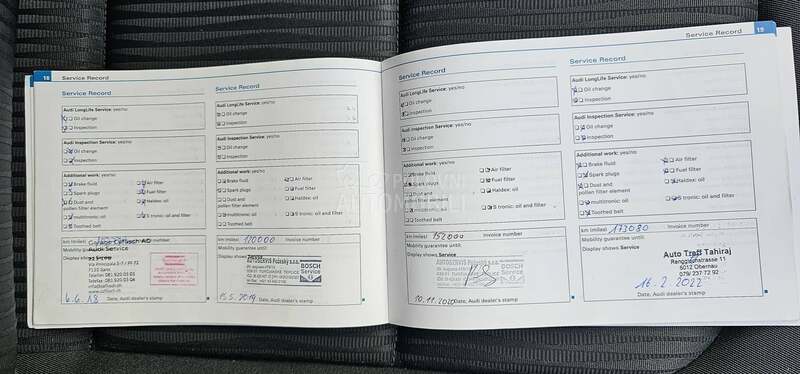 18 Service Record
Service Record
Audi LongLife Service: yes/no
Oil change
Inspection
Audi Inspection Service: yes/no
Oil change
Inspection
Additional work: yes/no
Brake fluid
Air filter
Spark plugs
Fuel filter
Dust and
pollen filter element
Haldex: oil
multitronic: oil
S tronic: oil and filter
Toothed belt
km (miles)
Invoice number
Mobility guarantee until:
Display shows Service
Garage Caflisch AG
Audi Service
7130 Ilanz
6.6.18
Date, Audi dealer's stamp
Service Record
Audi LongLife Service: yes/no
Oil change
Inspection
Audi Inspection Service: yes/no
Oil change
Inspection
Additional work: yes/no
Brake fluid
Air filter
Spark plugs
Fuel filter
Dust and
pollen filter element
Haldex: oil
multitronic: oil
S tronic: oil and filter
Toothed belt
km (miles) 120000 Invoice number
Mobility guarantee until:
Display shows Service
BOSCH
Service
15.5.2019 Date, Audi dealer's stamp
Service Record
Audi LongLife Service: yes/no
Oil change
Inspection
Audi Inspection Service: yes/no
Oil change
Inspection
Additional work: yes/no
Brake fluid
Air filter
Spark plugs
Fuel filter
Dust and
pollen filter element
Haldex: oil
multitronic: oil
S tronic: oil and filter
Toothed belt
km (miles) 152000 Invoice number
Mobility guarantee until:
Display shows Service
BOSCH
Service
10.11.2020 Date, Audi dealer's stamp
Service Record 19
Service Record
Audi LongLife Service: yes/no
Oil change
Inspection
Audi Inspection Service: yes/no
Oil change
Inspection
Additional work: yes/no
Brake fluid
Air filter
Spark plugs
Fuel filter
Dust and
pollen filter element
Haldex: oil
multitronic: oil
S tronic: oil and filter
Toothed belt
km (miles) 173080 Invoice number
Mobility guarantee until:
Display shows Service
Auto Treff Tahiraj
6012 Obernau
079/ 237 72 92
16.2.2022
Date, Audi dealer's stamp